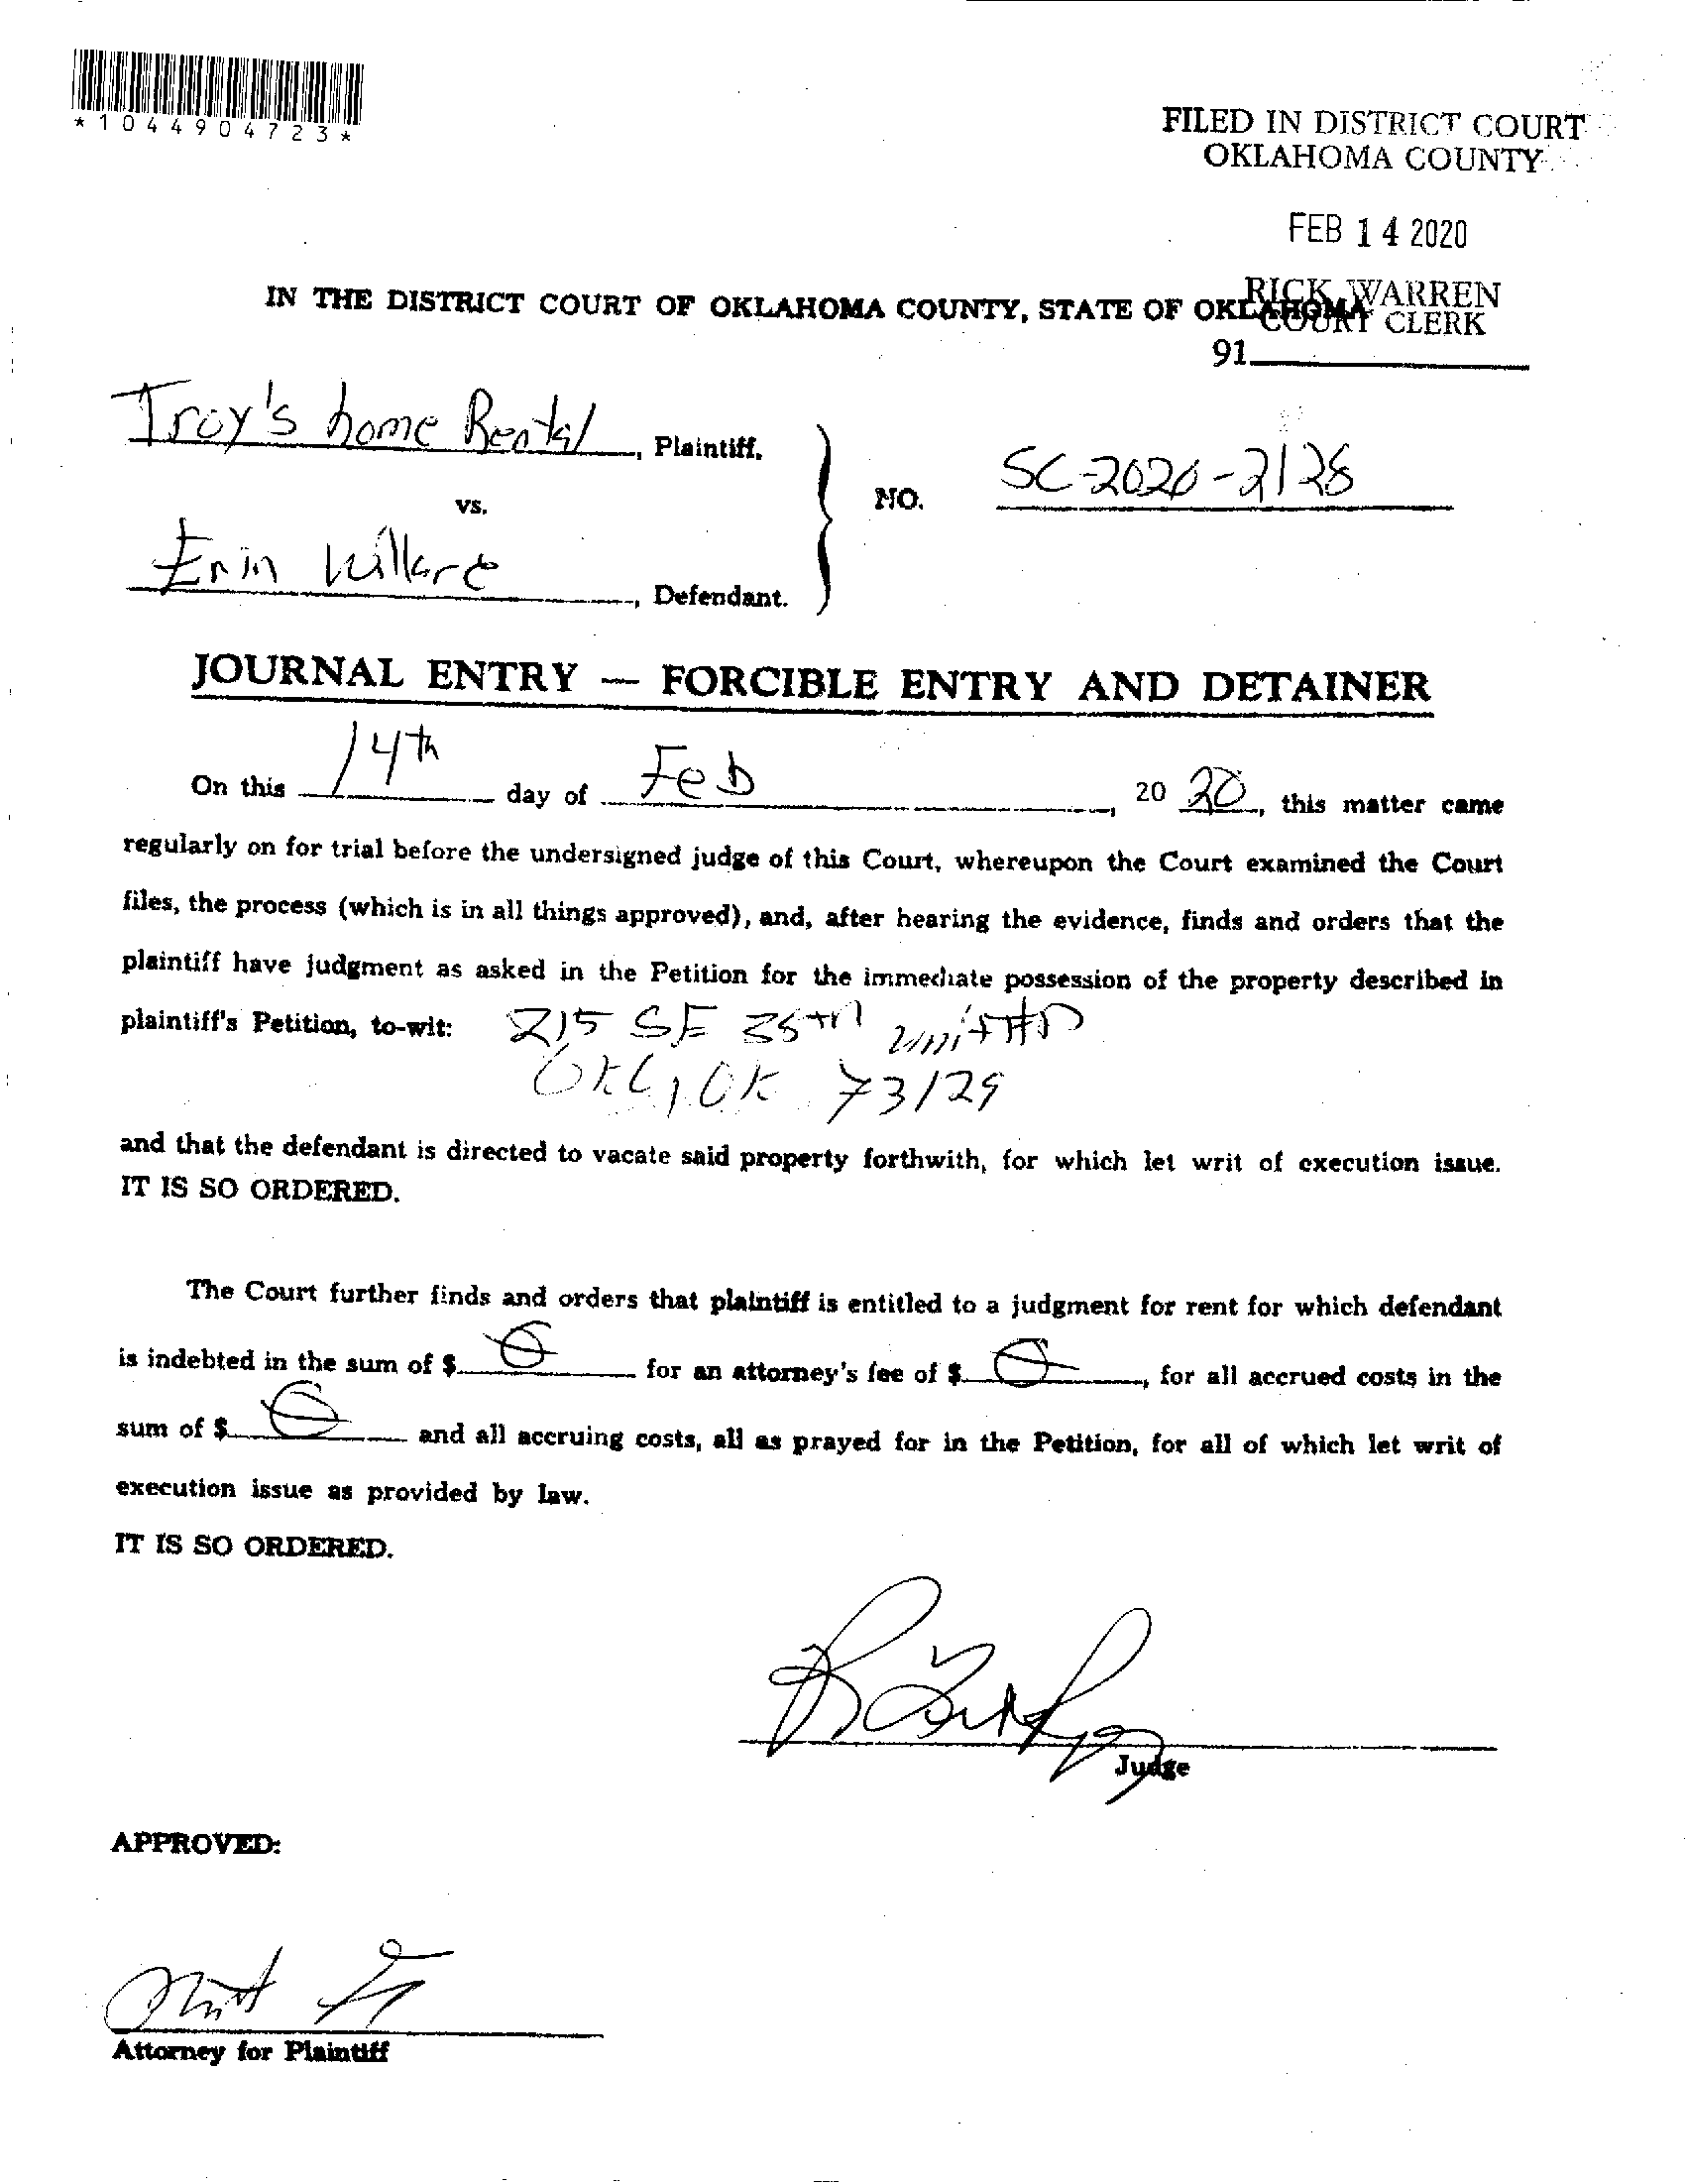 *1044904723*
FILED IN DISTRICT COURT
OKLAHOMA COUNTY
FEB 14 2020
RICK WARREN
COURT CLERK
IN THE DISTRICT COURT OF OKLAHOMA COUNTY, STATE OF OKLAHOMA
91
Troy's home Rental, Plaintiff,
vs.
NO. SC-2020-2128
Erin, Defendant.
JOURNAL ENTRY — FORCIBLE ENTRY AND DETAINER
On this 14th day of Feb, 20 20, this matter came
regularly on for trial before the undersigned judge of this Court, whereupon the Court examined the Court
files, the process (which is in all things approved), and, after hearing the evidence, finds and orders that the
plaintiff have judgment as asked in the Petition for the immediate possession of the property described in
plaintiff's Petition, to-wit: 215 SE unit #D
OKC, OK 73129
and that the defendant is directed to vacate said property forthwith, for which let writ of execution issue.
IT IS SO ORDERED.
The Court further finds and orders that plaintiff is entitled to a judgment for rent for which defendant
is indebted in the sum of $ 0 for an attorney's fee of $ 0, for all accrued costs in the
sum of $ 0 and all accruing costs, all as prayed for in the Petition, for all of which let writ of
execution issue as provided by law.
IT IS SO ORDERED.
Judge
APPROVED:
Attorney for Plaintiff